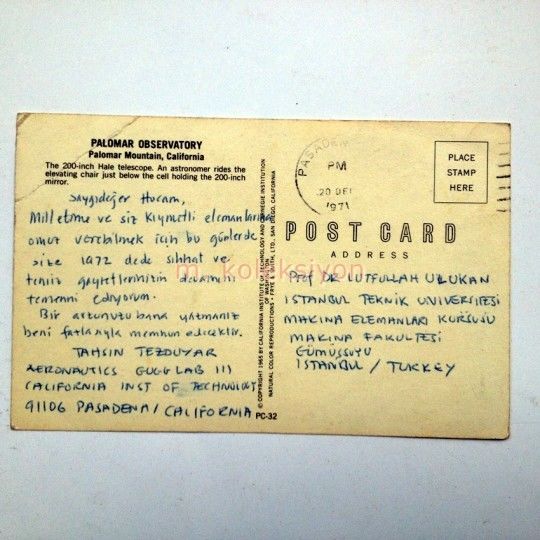 PALOMAR OBSERVATORY
Palomar Mountain, California
The 200-inch Hale telescope. An astronomer rides the
elevating chair just below the cell holding the 200-inch
mirror.
Saygıdeğer Hocam,
Milletime ve siz kıymetli elemanlarına
omuz verebilmek için bu günlerde
size 1972 dede sıhhat ve
temiz gayretlerinizin devamını
temenni ediyorum.
Bir arzunuzu bana yazmanız
beni fazlasıyla memnun edecektir.
TAHSIN TEZDUYAR
AERONAUTICS GUGG LAB 111
CALIFORNIA INST OF TECHNOLOGY
91106 PASADENA / CALIFORNIA
PC-32
© COPYRIGHT 1965 BY CALIFORNIA INSTITUTE OF TECHNOLOGY AND CARNEGIE INSTITUTION
OF WASHINGTON
NATURAL COLOR REPRODUCTIONS - FRYE & SMITH, LTD., SAN DIEGO, CALIFORNIA
PASADENA
PM
20 DEC
1971
PLACE
STAMP
HERE
POST CARD
ADDRESS
m. koleksiyon
Prof DR LUTFULLAH ULUKAN
ISTANBUL TEKNIK UNIVERSITESI
MAKINA ELEMANLARI KÜRSÜSÜ
MAKINA FAKULTESI
GÜMÜŞSUYU
ISTANBUL / TURKEY